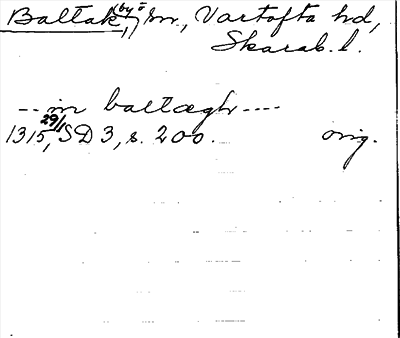 Baltak, (by i) sn., Vartofta hd,
Skarab. l.
-- in baltægh ----
1315 29/1, SD 3, s. 200. orig.